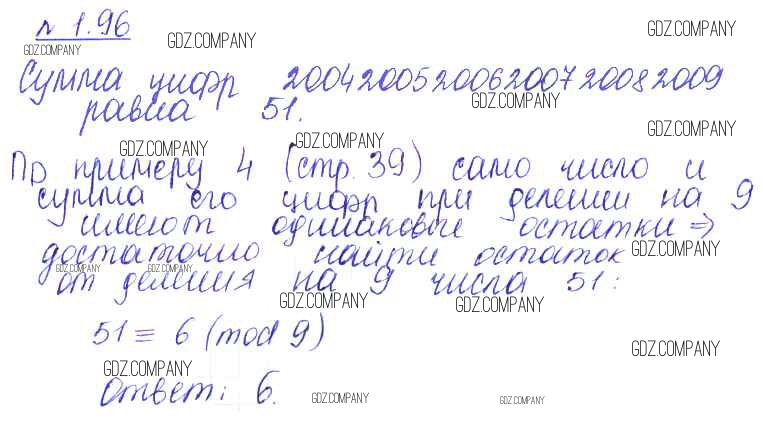 № 1.96
GDZ.COMPANY GDZ.COMPANY GDZ.COMPANY
Сумма цифр 200420052006200720082009
GDZ.COMPANY
равна 51.
GDZ.COMPANY GDZ.COMPANY GDZ.COMPANY
По примеру 4 (стр. 39) само число и
сумма его цифр при делении на 9
имеют одинаковые остатки ⇒
достаточно найти остаток
GDZ.COMPANY GDZ.COMPANY GDZ.COMPANY
от деления на 9 числа 51:
GDZ.COMPANY GDZ.COMPANY
51 ≡ 6 (mod 9)
GDZ.COMPANY GDZ.COMPANY
Ответ: 6.
GDZ.COMPANY GDZ.COMPANY